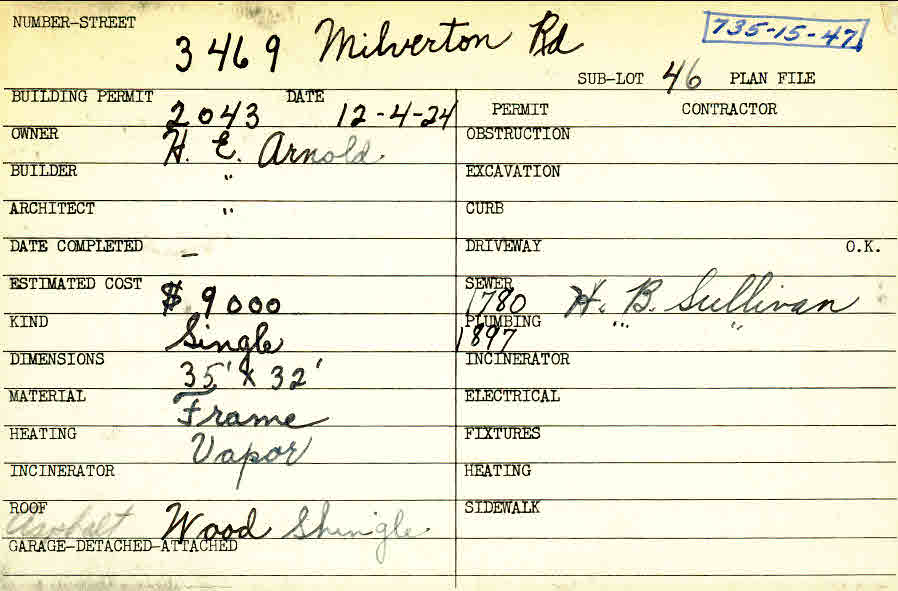 NUMBER-STREET 3469 Milverton Rd 735-15-47
SUB-LOT 46 PLAN FILE
BUILDING PERMIT 2043 DATE 12-4-24 PERMIT CONTRACTOR
OWNER H. E. Arnold OBSTRUCTION
BUILDER " EXCAVATION
ARCHITECT " CURB
DATE COMPLETED — DRIVEWAY O.K.
ESTIMATED COST $9000 SEWER 1780 H. B. Sullivan
KIND Single PLUMBING 1897 " "
DIMENSIONS 35' x 32' INCINERATOR
MATERIAL Frame ELECTRICAL
HEATING Vapor FIXTURES
INCINERATOR HEATING
ROOF Asphalt Wood Shingle SIDEWALK
GARAGE-DETACHED-ATTACHED